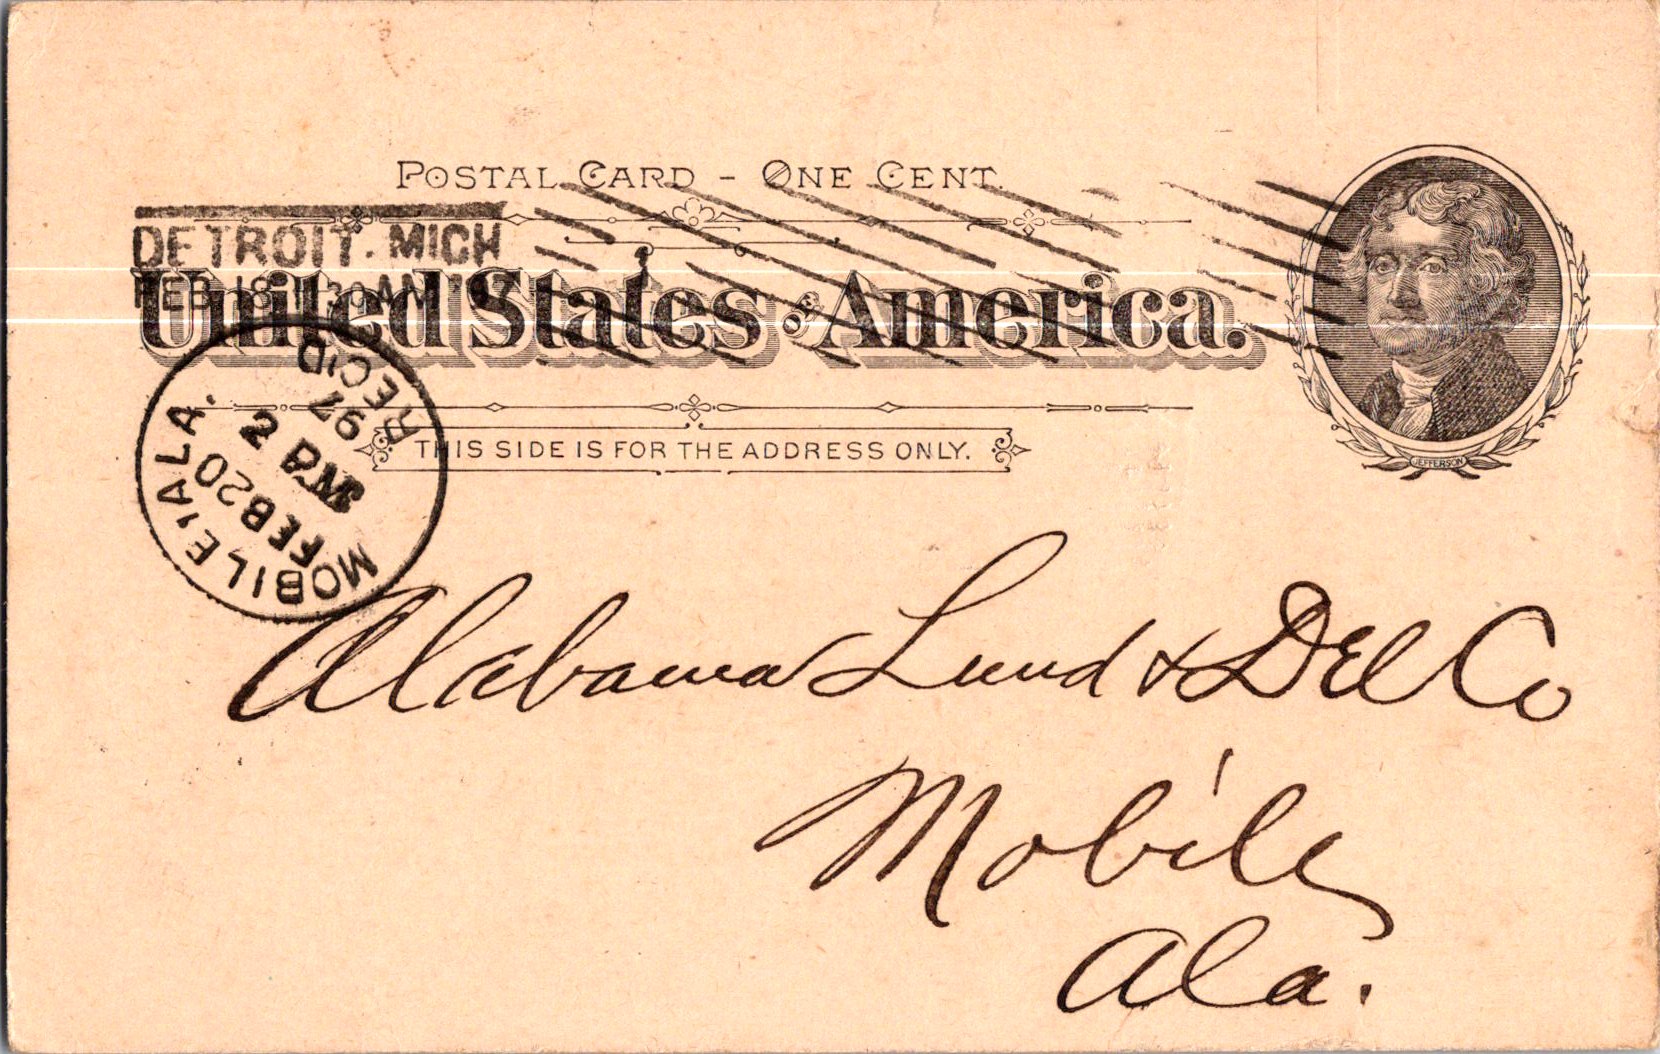 POSTAL CARD - ONE CENT.
DETROIT. MICH
FEB 18 11 30 AM '97
United States OF America.
MOBILE ALA. REC'D
FEB 20
2 PM
97
THIS SIDE IS FOR THE ADDRESS ONLY.
JEFFERSON
Alabama Lund & Del Co
Mobile
Ala.